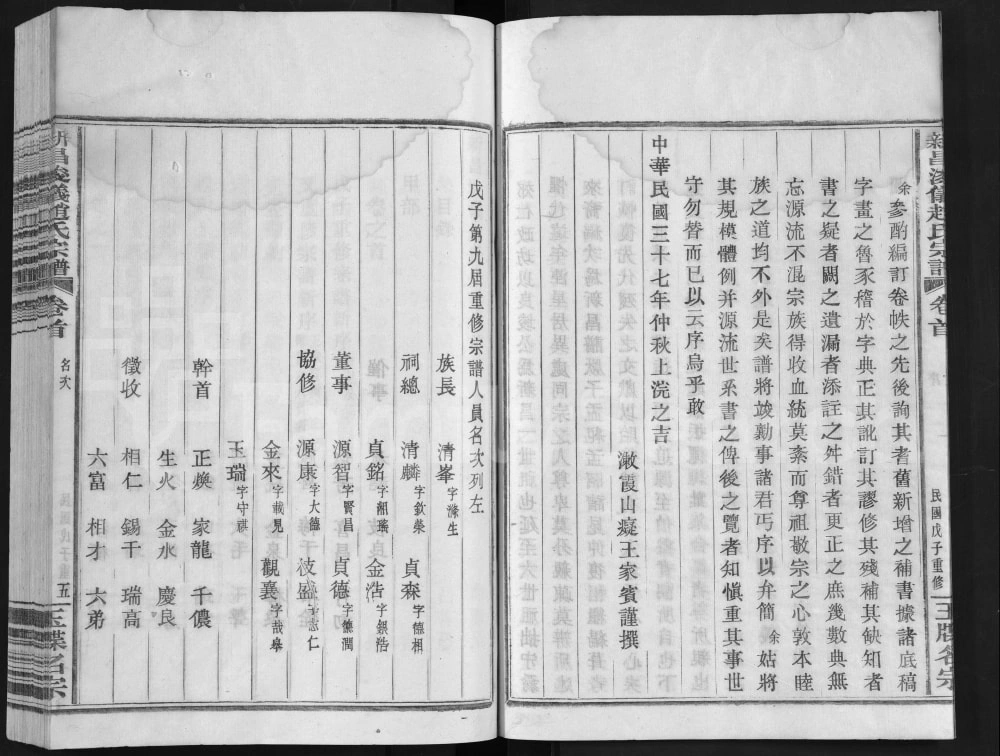 新昌浚儀趙氏宗譜 卷首
民國戊子重修
玉牒名宗
余參酌編訂卷帙之先後詢其耆舊新增之補書據諸底稿
字畫之魯豕稽於字典正其訛訂其謬修其殘補其缺知者
書之疑者闕之遺漏者添註之舛錯者更正之庶幾數典無
忘源流不混宗族得收血統莫紊而尊祖敬宗之心敦本睦
族之道均不外是矣譜將竣勷事諸君丐序以弁簡余姑將
其規模體例并源流世系書之俾後之覽者知慎重其事世
守勿替而已以云序烏乎敢
中華民國三十七年仲秋上浣之吉
澉霞山癡王家賓謹撰
戊子第九屆重修宗譜人員名次列左
族長 清峯字滌生
祠總 清麟字欽榮 貞森字德相
貞銘字韶瑞 金浩字銀浩
董事 源智字賢昌 貞德字德潤
協修 源康字大德 彼盛字志仁
金來字載見 觀襄字哉舉
玉瑞字守祺
幹首 正煥 家龍 千儂
生火 金水 慶良
徵收 相仁 錫千 瑞高
六富 相才 大弟
新昌浚儀趙氏宗譜 卷首
名次
五
玉牒名宗